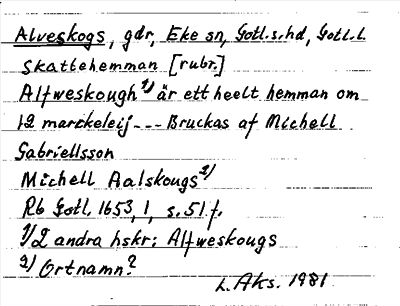 Alveskogs, gdr, Eke sn, Gotl.s.hd, Gotl.l.
Skattehemman [rubr.]
Alfweskough 1) är ett heelt hemman om
12 marckeleij --- Bruckas af Michell
Gabriellsson
Michell Aalskougs 2)
Rb Gotl. 1653, 1, s. 51 f.
1) 2 andra hskr: Alfweskougs
2) Ortnamn?
L. Aks. 1981